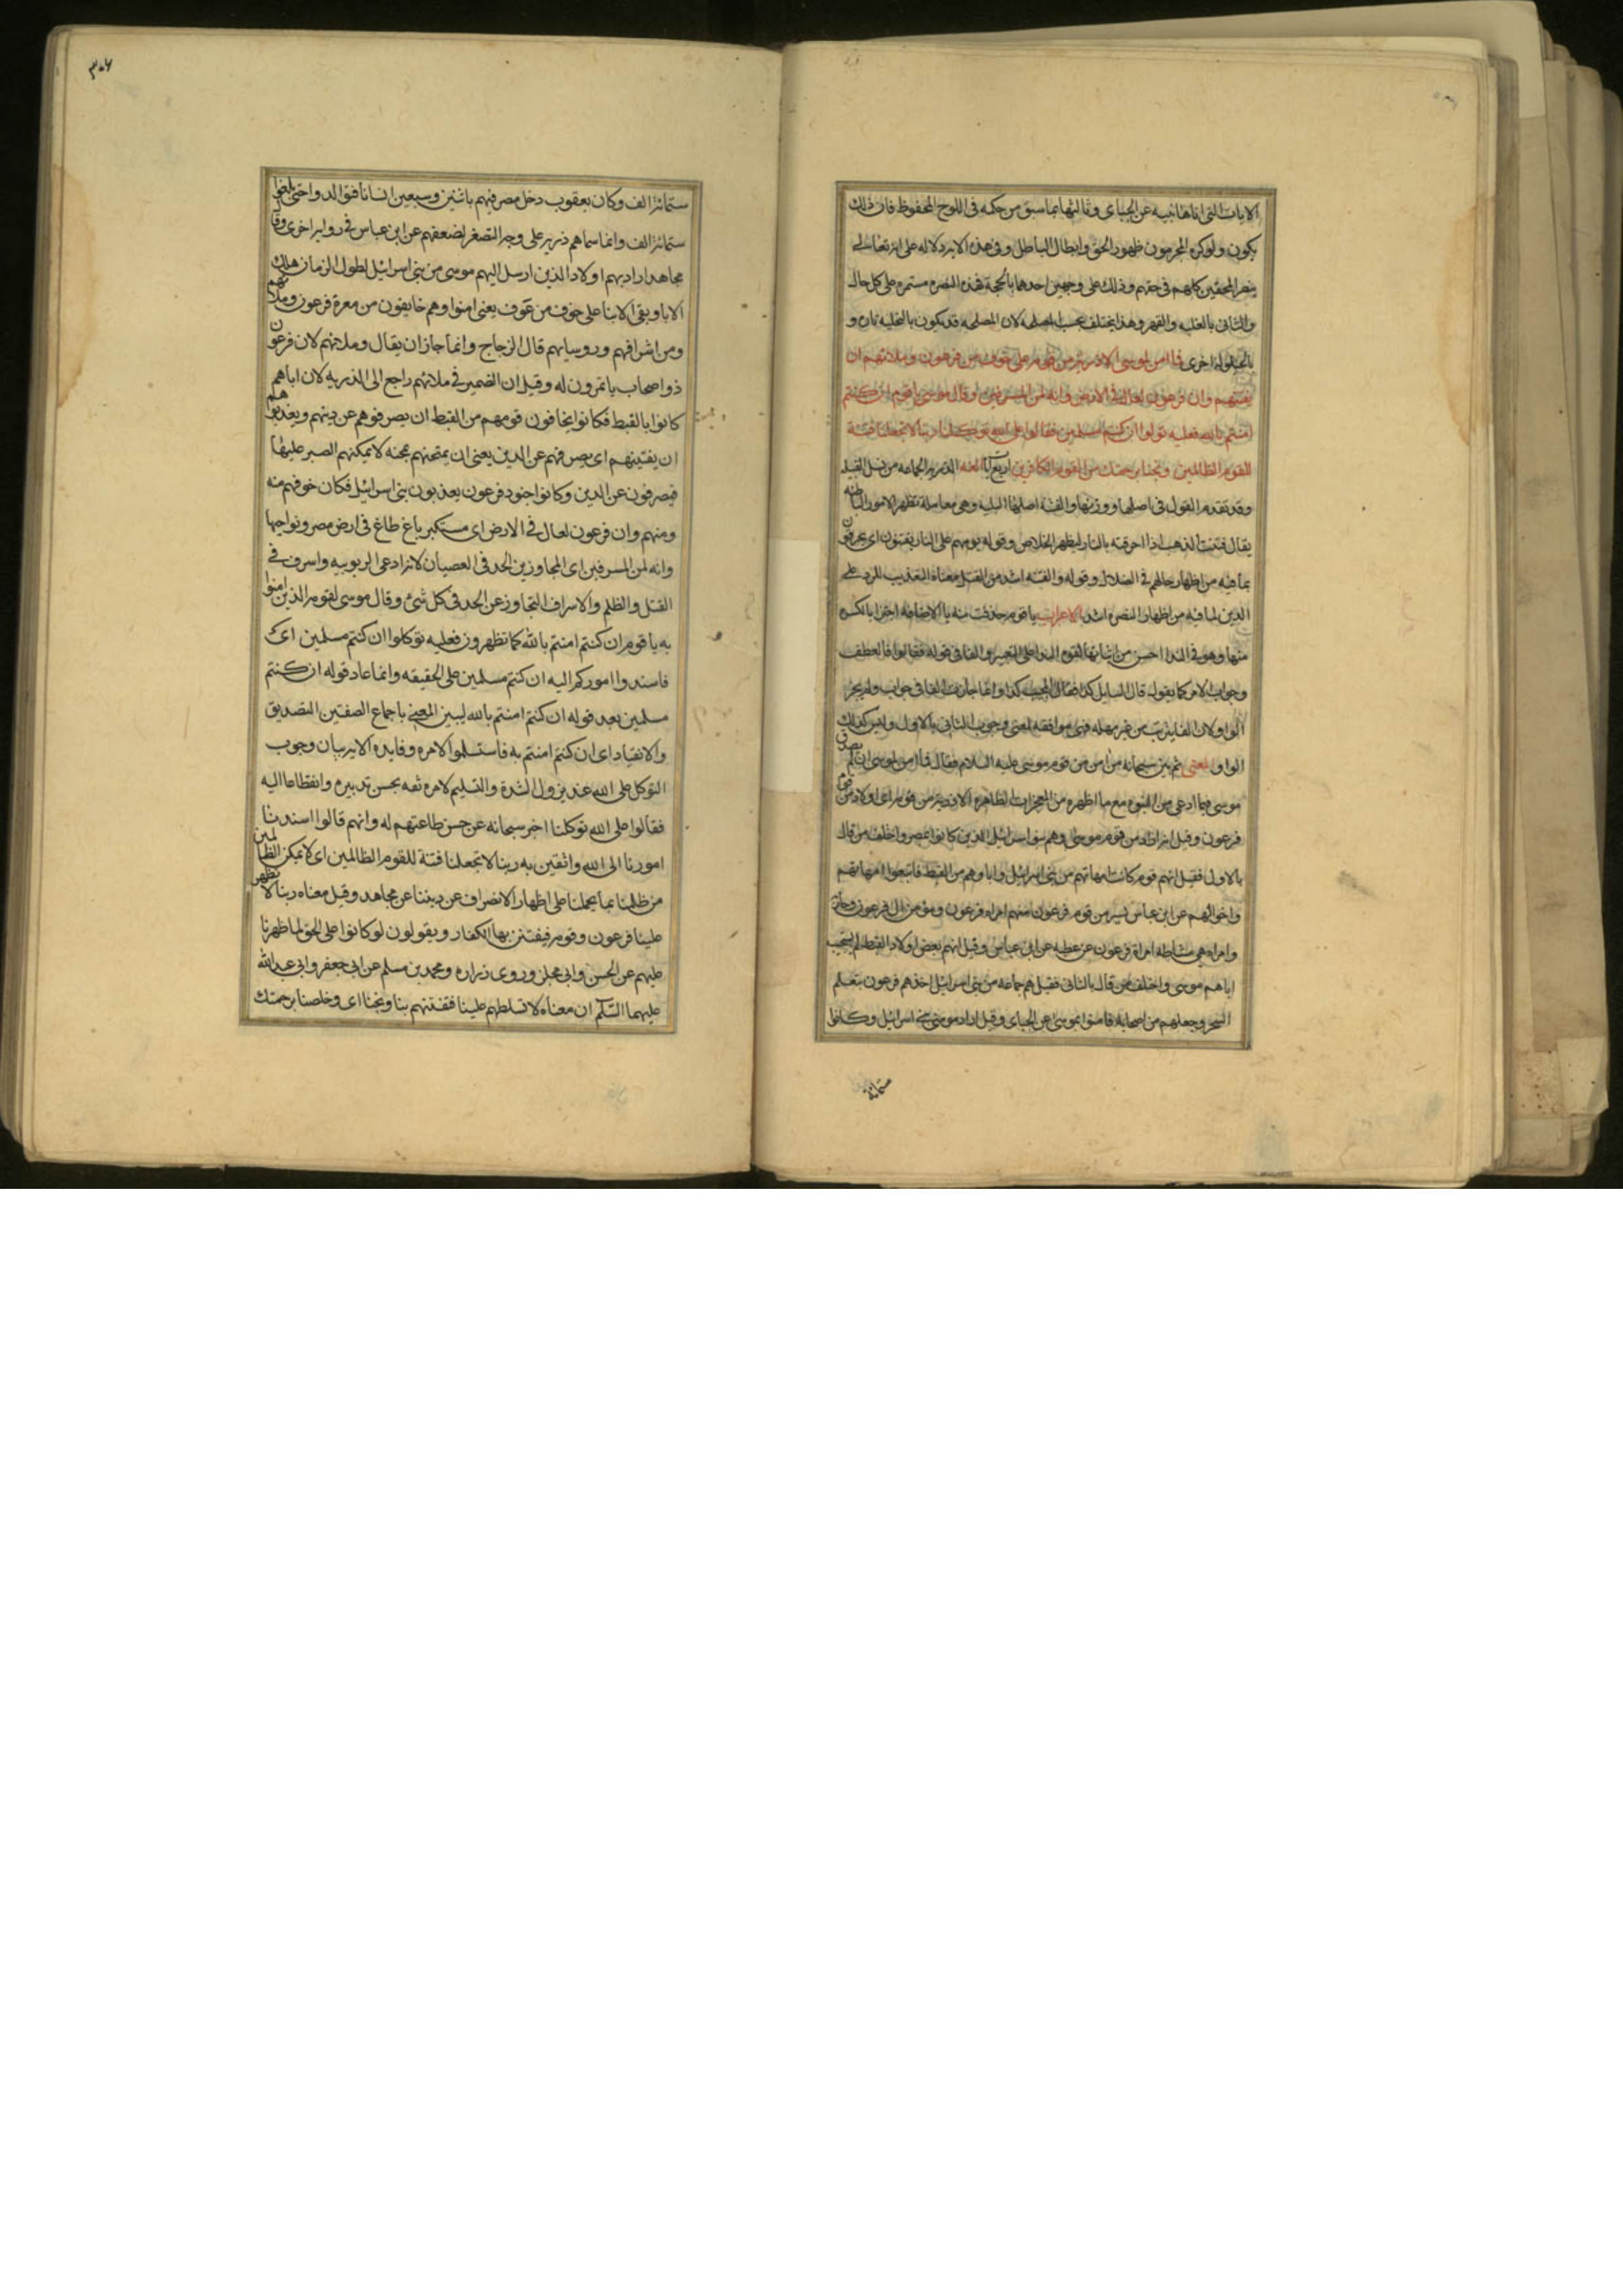 الايات التي اتاها نبيه عن الجبائي وثالثها بما سبق من حكمه في اللوح المحفوظ فان ذلك
يكون ولو كره المجرمون ظهور الحق وابطال الباطل وفي هذه الاية دلاله على انه تعالى
ينصر المحقين كلهم في حقهم وذلك على وجهين احدهما بالحجة فهذه النصره مستمره على كل حال
والثاني بالغلبه والقهر وهذا يختلف بحسب المصلحه لان المصلحه قد يكون بالتخليه تاره و
بالحيلولة اخرى فما امن لموسى الا ذرية من قومه على خوف من فرعون وملائهم ان
يفتنهم وان فرعون لعال في الارض وانه لمن المسرفين وقال موسى يا قوم ان كنتم
امنتم بالله فعليه توكلوا ان كنتم مسلمين فقالوا على الله توكلنا ربنا لا تجعلنا فتنة
للقوم الظالمين ونجنا برحمتك من القوم الكافرين اربع آيات اللغه الذرية الجماعه من نسل القبيله
وقد تقدم القول في اصلها ووزنها والفتنة اصلها البليه وهي معاملة تظهر الامور الباطنه
يقال فتنت الذهب اذا احرقته بالنار ليظهر الخلاص وقوله يوم هم على النار يفتنون اي يحرقون
بما فيه من اظهار حالهم في الضلال وقوله والفتنه اشد من القتل معناه التعذيب للرد على
الدين لما فيه من اظهار النصره اشد الاعراب يا قوم حذفت منه يا الاضافه اجتزا بالكسره
منها وهو في الندا احسن من اثباتها لقوة الندا على التغيير والفا في قوله فقالوا فا العطف
وجواب الامر كما يقول قال السايل كذا فقال المجيب كذا وانما جازت الفا في جواب ولم يجز
الواو لان الفا يترتب من غير مهله فهي موافقه لمعنى وجوب الثاني بالاول وليس كذلك
الواو المعنى ثم بين سبحانه من امن من قوم موسى عليه السلام فقال فما امن لموسى اي لم يصدق
موسى فيما ادعى من النبوة مع ما اظهره من المعجزات الظاهره الا ذرية من قومه اي اولاد من قوم
فرعون وقيل انه اراد من قوم موسى وهم بنو اسرائيل الذين كانوا بمصر واختلف من قال
بالاول فقيل انهم قوم كانت امهاتهم من بني اسرائيل واباوهم من القبط فاتبعوا امهاتهم
واخوالهم عن ابن عباس يسير من قوم فرعون منهم امراة فرعون ومؤمن ال فرعون وجاريه
وامراه هي مشاطه امراة فرعون عن عطيه عن ابن عباس وقيل انهم بعض اولاد القبط لم يستجب
اباهم موسى واختلف من قال بالثاني فقيل هم جماعه من بني اسرائيل اخذهم فرعون بتعلم
السحر وجعلهم من اصحابه فامنوا بموسى عن الجبائي وقيل اراد مومني بني اسرائيل وكانوا
ستمائة
٣٠٦
ستمائة الف وكان يعقوب دخل مصر فيهم باثنين وسبعين انسانا فتوالدوا حتى بلغوا
ستمائة الف وانما سماهم ذرية على وجه التصغير لضعفهم عن ابن عباس في رواية اخرى وقال
مجاهد اراد بهم اولاد الذين ارسل اليهم موسى من بني اسرائيل لطول الزمان هلك
الابا وبقي الابنا على خوف من فرعون يعني امنوا وهم خايفون من معرة فرعون وملائهم
ومن اشرافهم وروسايهم قال الزجاج وانما جاز ان يقال وملائهم لان فرعون
ذو اصحاب ياتمرون له وقيل ان الضمير في ملائهم راجع الى الذريه لان اباهم
كانوا بالقبط فكانوا يخافون قومهم من القبط ان يصرفوهم عن دينهم ويعذبوهم
ان يفتنهم اي يصرفهم عن الدين يعني ان يمتحنهم بمحنه لا يمكنهم الصبر عليها
فيصرفون عن الدين وكانوا جنود فرعون يعذبون بني اسرائيل فكان خوفهم منه
ومنهم وان فرعون لعال في الارض اي مستكبر باغ طاغ في ارض مصر ونواحيها
وانه لمن المسرفين اي المجاوزين الحد في العصيان لانه ادعى الربوبيه واسرف في
القتل والظلم والاسراف التجاوز عن الحد في كل شئ وقال موسى لقومه الذين امنوا
به يا قوم ان كنتم امنتم بالله كما تظهرون فعليه توكلوا ان كنتم مسلمين اي
فاسندوا اموركم اليه ان كنتم مسلمين على الحقيقه وانما عاد قوله ان كنتم
مسلمين بعد قوله ان كنتم امنتم بالله ليبين المعنى باجماع الصفتين التصديق
والانقياد اي ان كنتم امنتم به فاستسلموا لامره وفايده الاية بيان وجوب
التوكل على الله عند نزول الشدة والتسليم لامره ثقه بحسن تدبيره وانقطاعا اليه
فقالوا على الله توكلنا اخبر سبحانه عن حسن طاعتهم له وانهم قالوا اسندنا
امورنا الى الله واثقين به ربنا لا تجعلنا فتنة للقوم الظالمين اي لا تمكن الظالمين
من ظلمنا بما يحملنا على اظهار الانصراف عن ديننا عن مجاهد وقيل معناه ربنا لا تظهر
علينا فرعون وقومه فيفتتن بها الكفار ويقولون لو كانوا على الحق لما ظهرنا
عليهم عن الحسن وابي مجلز وروى زراره ومحمد بن مسلم عن ابي جعفر وابي عبدالله
عليهما السلم ان معناه لا تسلطهم علينا فتفتنهم بنا ونجنا اي وخلصنا برحمتك